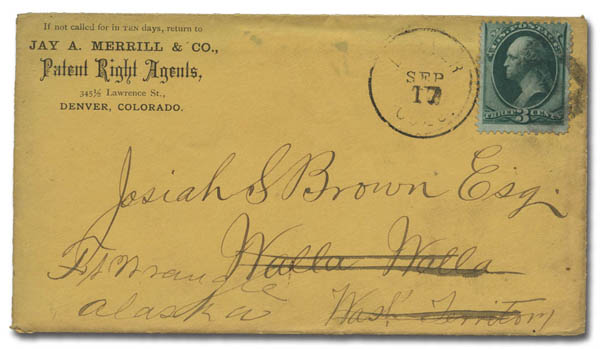 If not called for in TEN days, return to
JAY A. MERRILL & CO.,
Patent Right Agents,
345½ Lawrence St.,
DENVER, COLORADO.
SEP
17
COLO.
THREE 3 CENTS
Josiah S Brown Esq.
Walla Walla
Ft Wrangle
Alaska
Wash Territory